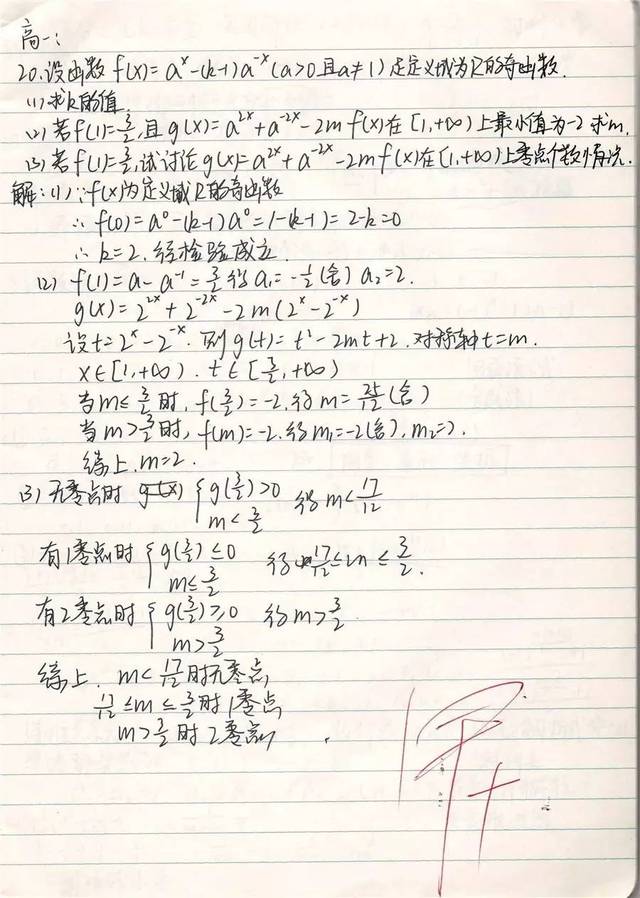 高一:
20.设函数 f(x)= aˣ-(k-1)a⁻ˣ (a>0且a≠1)是定义域为R的奇函数.
(1)求k的值.
(2)若f(1)=3/2,且g(x)=a²ˣ+a⁻²ˣ-2m f(x)在[1,+∞)上最小值为-2 求m.
(3)若f(1)=3/2,试讨论g(x)=a²ˣ+a⁻²ˣ-2m f(x)在[1,+∞)上零点个数情况.
解:(1)∵f(x)为定义域R的奇函数
∴ f(0)=a⁰-(k-1)a⁰=1-(k-1)=2-k=0
∴ k=2.经检验成立.
(2) f(1)=a-a⁻¹=3/2 得 a₁=-1/2(舍) a₂=2.
g(x)=2²ˣ+2⁻²ˣ-2m(2ˣ-2⁻ˣ)
设t=2ˣ-2⁻ˣ.则g(t)=t²-2mt+2.对称轴t=m.
x∈[1,+∞).t∈[3/2,+∞)
当m≤3/2时,f(3/2)=-2.得m=25/12(舍)
当m>3/2时,f(m)=-2.得m₁=-2(舍),m₂=2.
综上.m=2.
(3)无零点时 { g(3/2)>0 m<3/2 得m<17/12
有1零点时 { g(3/2)≤0 m≤3/2 得 17/12≤m≤3/2.
有2零点时 { g(3/2)≥0 m>3/2 得m>3/2.
综上. m<17/12时无零点,
17/12≤m≤3/2时1零点
m>3/2时2零点,